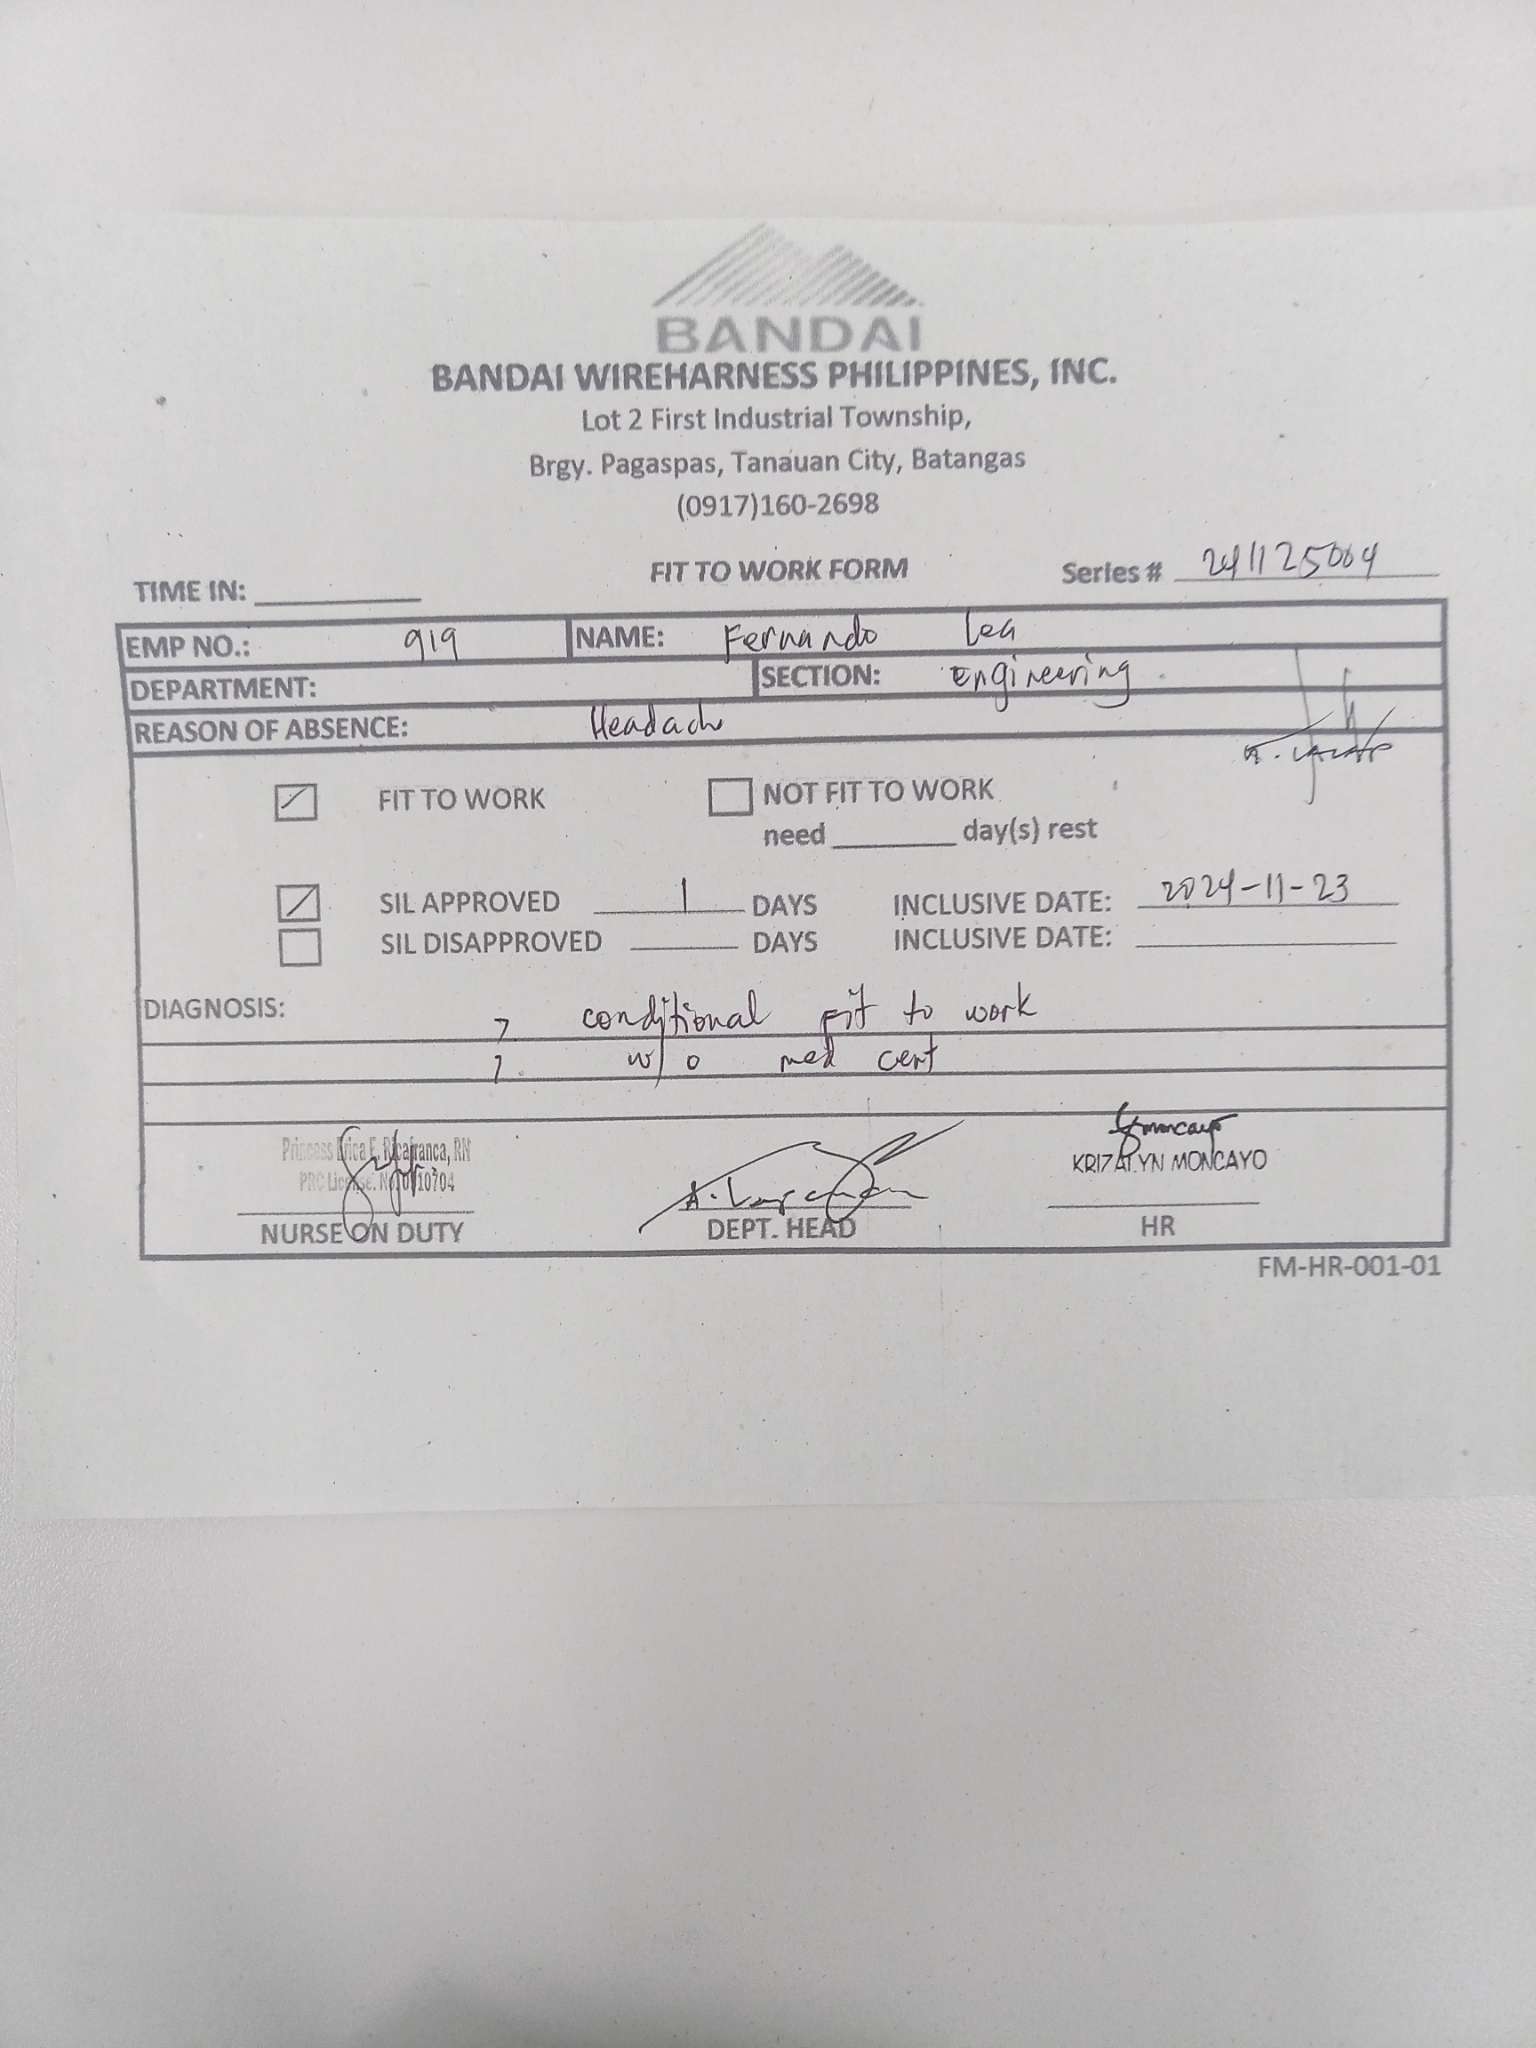 BANDAI
BANDAI WIREHARNESS PHILIPPINES, INC.
Lot 2 First Industrial Township,
Brgy. Pagaspas, Tanauan City, Batangas
(0917)160-2698
TIME IN: FIT TO WORK FORM Series # 241125004
EMP NO.: 919 NAME: Fernando Lea
DEPARTMENT: SECTION: Engineering
REASON OF ABSENCE: Headach
FIT TO WORK NOT FIT TO WORK
need day(s) rest
SIL APPROVED 1 DAYS INCLUSIVE DATE: 2024-11-23
SIL DISAPPROVED DAYS INCLUSIVE DATE:
DIAGNOSIS: conditional fit to work
w/o med cert
Princess Erica E. Ricafranca, RN
PRC License. No.
Moncayo
KRIZALYN MONCAYO
NURSE ON DUTY DEPT. HEAD HR
FM-HR-001-01